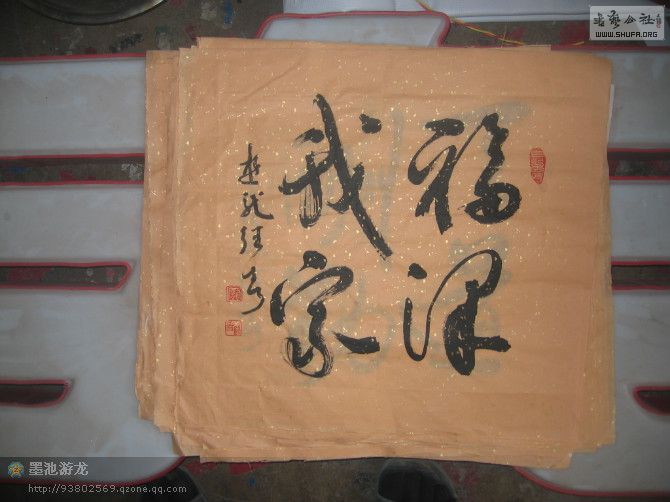 福泽
我家
书艺公社
WWW.SHUFA.ORG
墨池游龙
http://93802569.qzone.qq.com